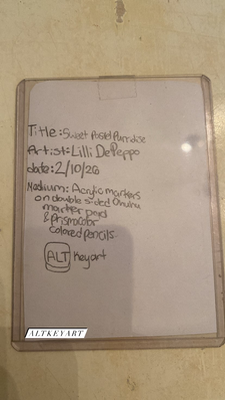 Title: Sweet Pastel Parradise
Artist: Lilli DePeppo
date: 2/10/26
Medium: Acrylic markers
on double sided Ohuhu
marker pad
& Prismacolor
colored pencils.
ALT Keyart
ALTKEYART